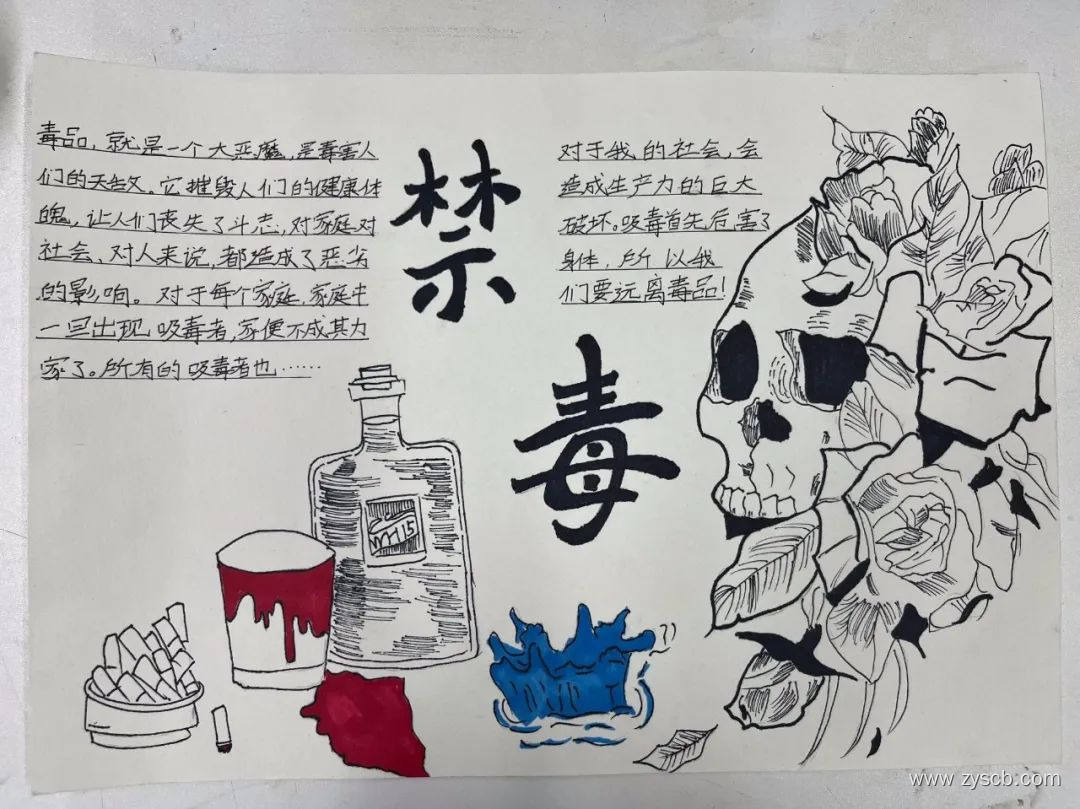 毒品，就是一个大恶魔，是毒害人
们的天敌。它摧毁人们的健康体
魄，让人们丧失了斗志，对家庭对
社会、对人来说，都造成了恶劣
的影响。对于每个家庭，家庭中
一旦出现吸毒者，家便不成其为
家了。所有的吸毒者也……
禁
毒
对于我的社会，会
造成生产力的巨大
破坏。吸毒首先危害了
身体，所以我
们要远离毒品！
www.zyscb.com